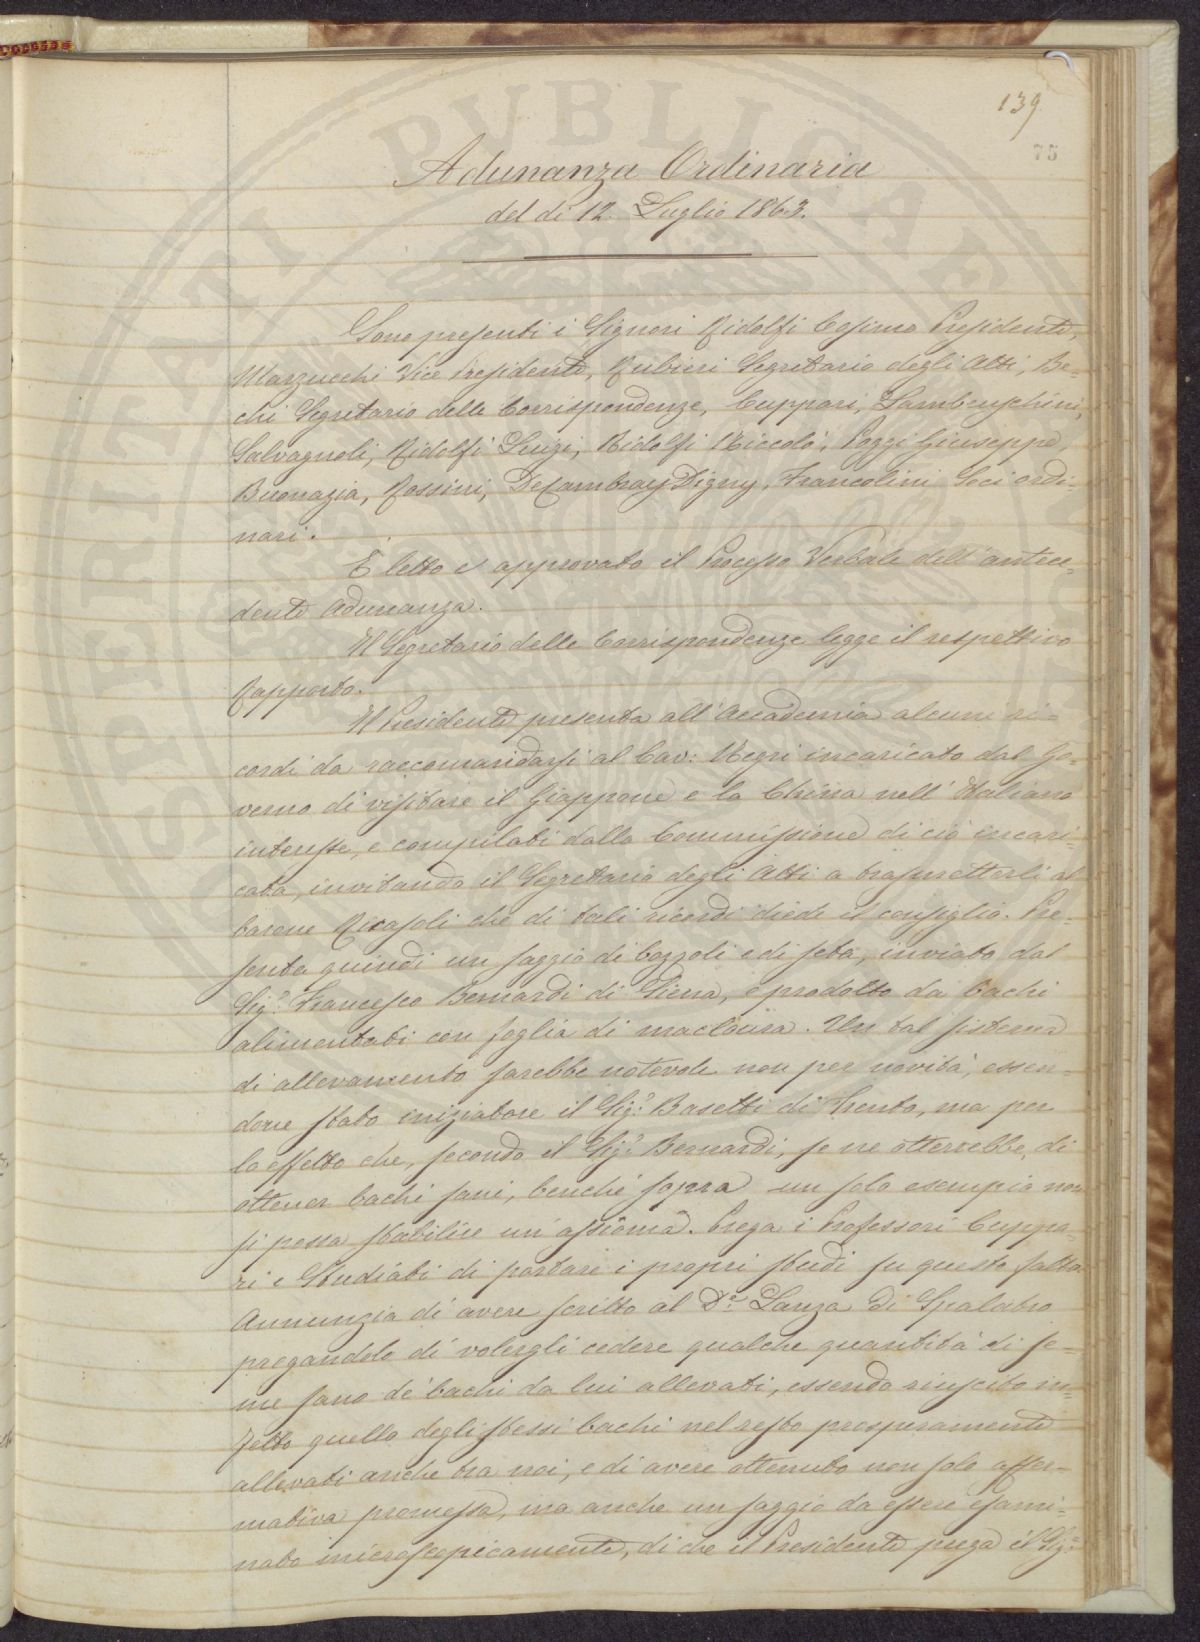 139
75
Adunanza Ordinaria
del di 12. Luglio 1863.
Sono presenti i Signori Ridolfi Cosimo Presidente,
Marzucchi Vice Presidente, Rubieri Segretario degli Atti, Be=
chi Segretario delle Corrispondenze, Cuppari, Lambruschini,
Salvagnoli, Ridolfi Luigi, Ridolfi Niccolò, Poggi Giuseppe,
Buonazia, Rossini, DeCambray Digny, Francolini Soci ordi=
nari.
È letto e approvato il Processo Verbale dell'antece=
dente Adunanza.
Il Segretario delle Corrispondenze legge il respettivo
Rapporto.
Il Presidente presenta all'Accademia alcuni ri=
cordi da raccomandarsi al Cav: Negri incaricato dal Go=
verno di visitare il Giappone e la China nell'Italiano
interesse, e compilati dalla Commissione di ciò incari=
cata, invitando il Segretario degli Atti a trasmetterli al
barone Ricasoli che di tali ricordi diede il consiglio. Pre=
senta quindi un saggio di bozzoli e di seta, inviato dal
Sig.r Francesco Bernardi di Siena, e prodotto da bachi
alimentati con foglia di macloura. Un tal sistema
di allevamento sarebbe notevole non per novità, essen=
done stato iniziatore il Sig.r Basetti di Trento, ma per
lo effetto che, secondo il Sig.r Bernardi, se ne otterrebbe, di
ottener bachi sani, benché sopra un solo esempio non
si possa stabilire un assioma. Prega i Professori Cuppa=
ri e Studiati di portare i propri studi su questo fatto.
Annunzia di avere scritto al D.r Lanza di Spalatro
pregandolo di volergli cedere qualche quantità di se=
me sano de' bachi da lui allevati, essendo riuscito in=
fetto quello degli stessi bachi nel resto prosperamente
allevati anche tra noi, e di avere ottenuto non solo affer=
mativa promessa, ma anche un saggio da essere esami=
nato microscopicamente, di che il Presidente prega il Sig.r